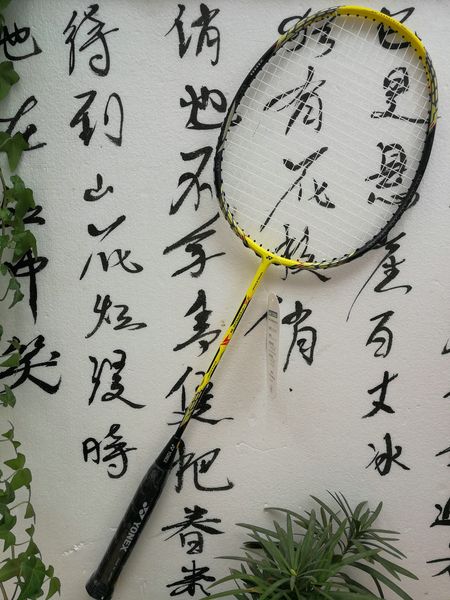 已是悬崖百丈冰
犹有花枝俏
俏也不争春隻把春来
待到山花烂漫時
她在丛中笑
YONEX